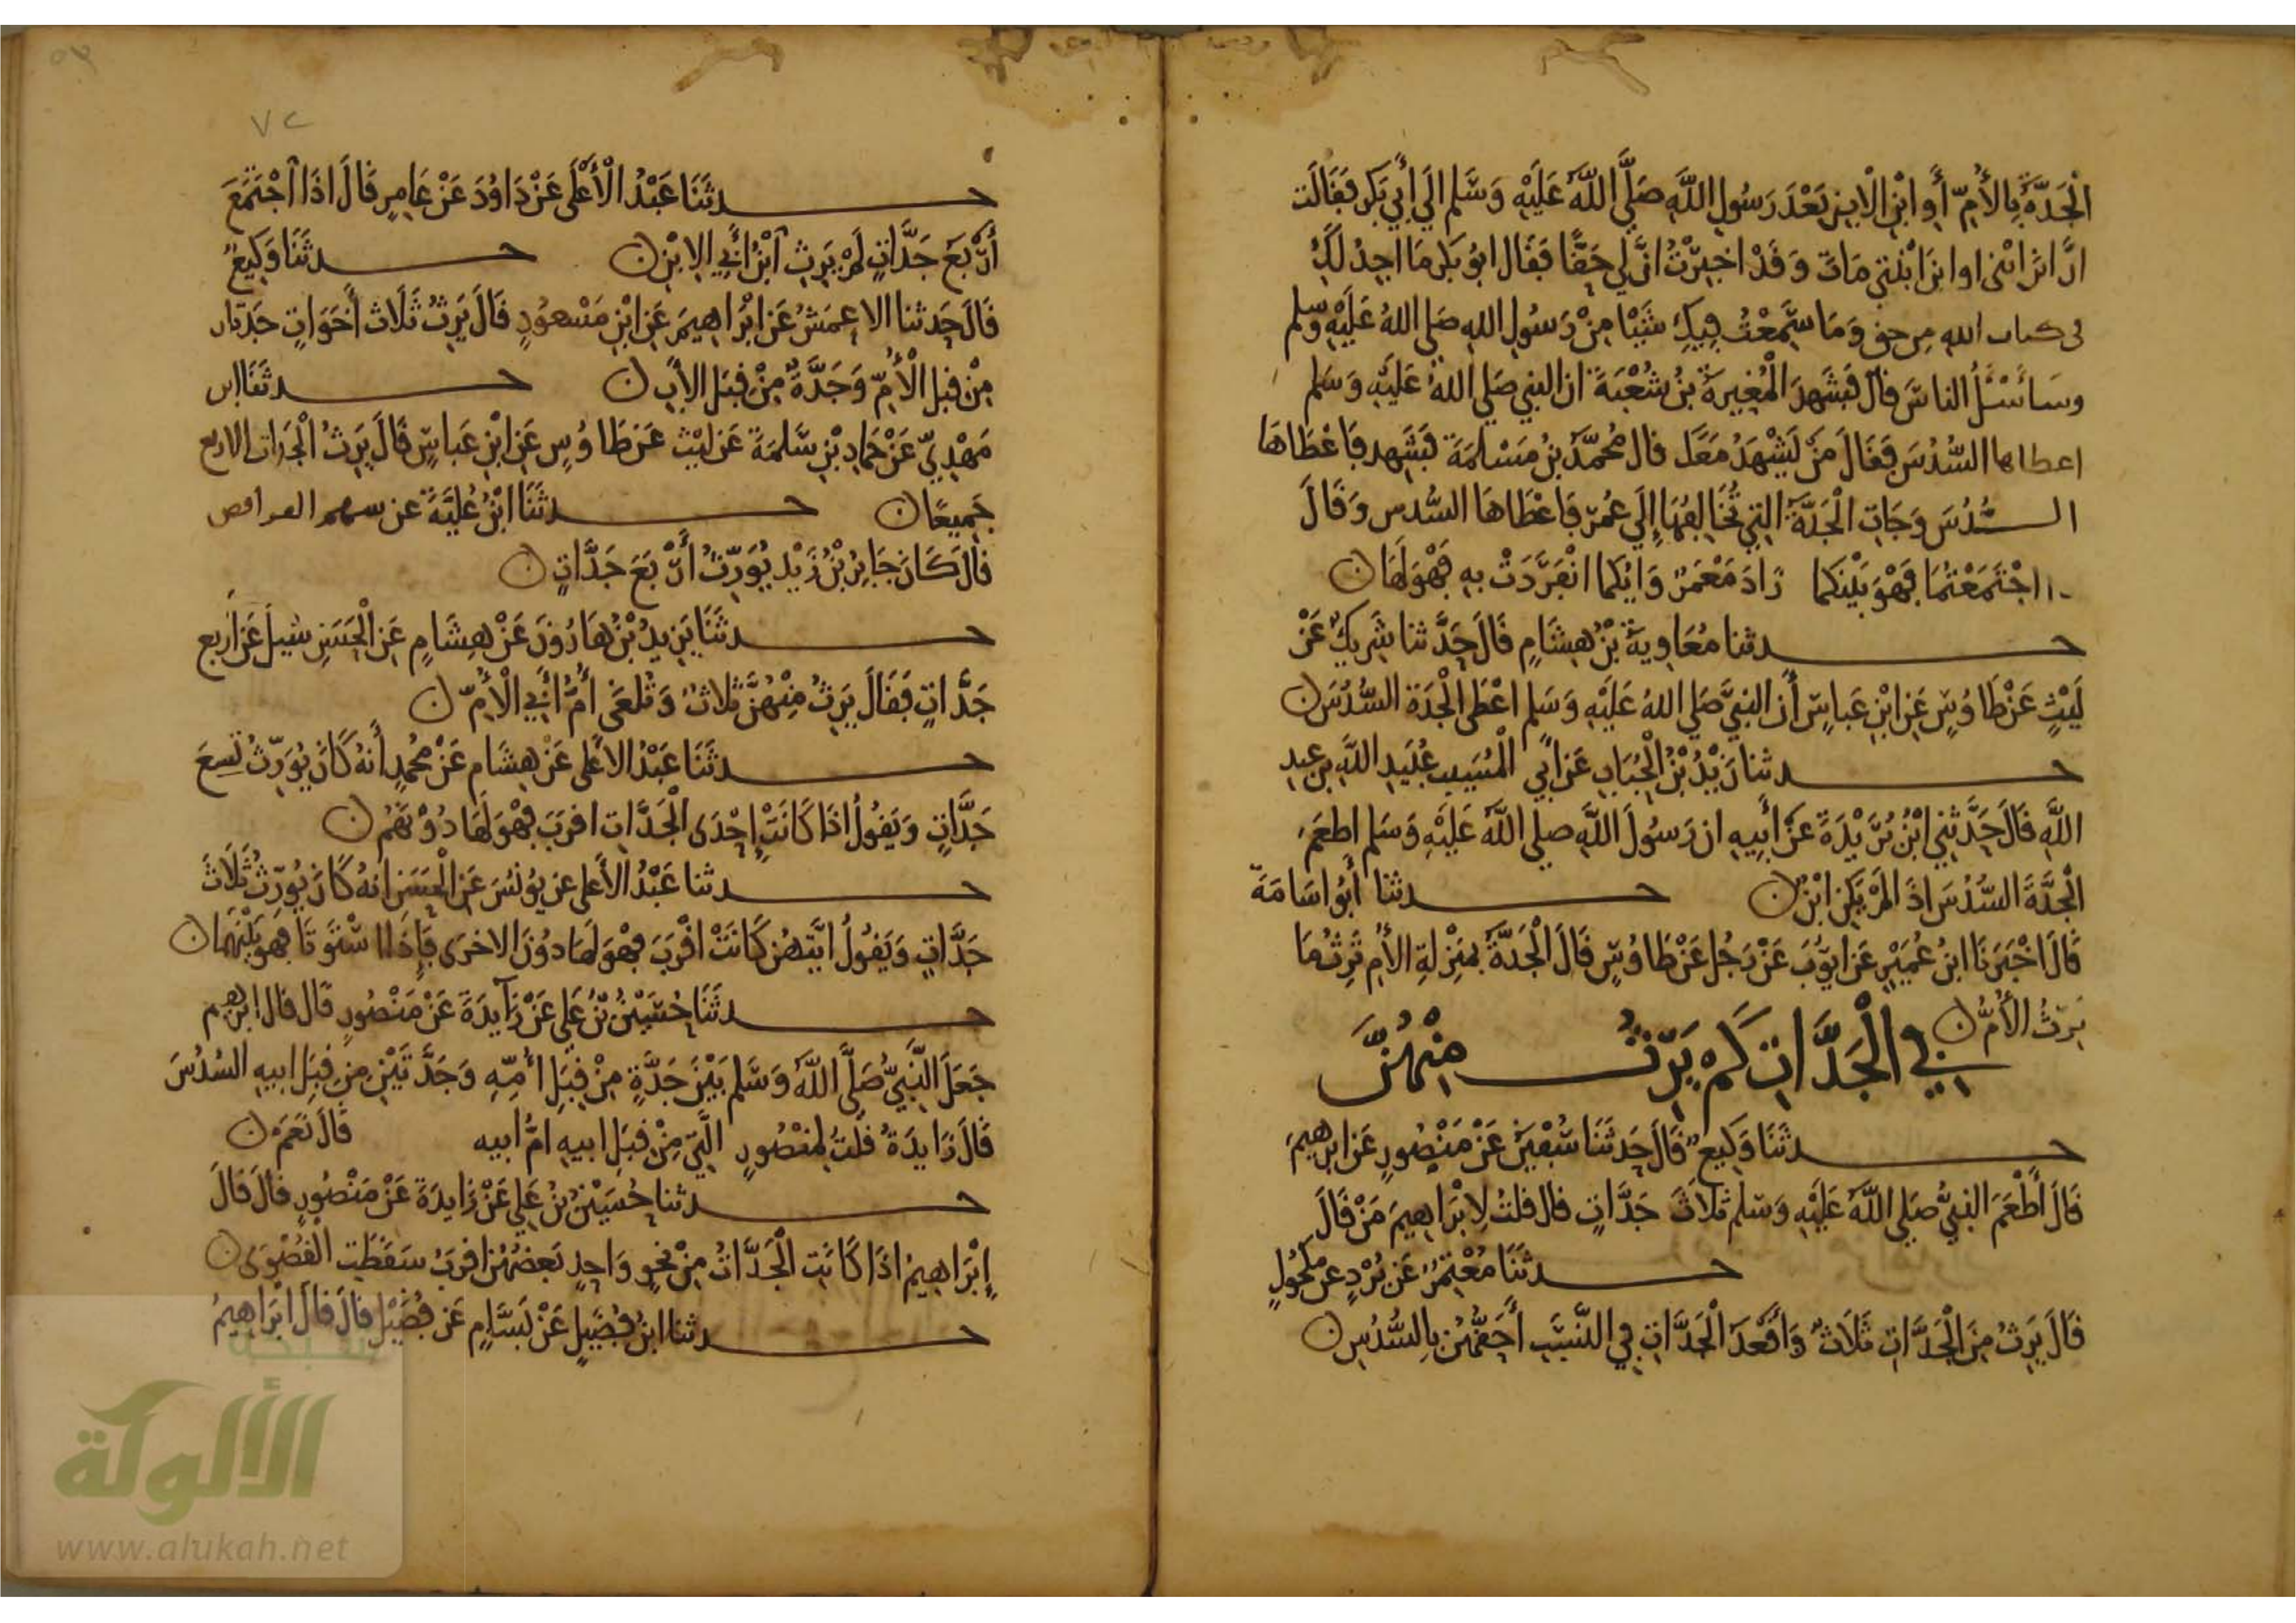 الْجَدَّةُ بِالأُمِّ أَو ابْنِ الْابن بَعْدَ رَسُولِ اللَّهِ صَلَّى اللَّهُ عَلَيْهِ وَسَّلم الَي أَبِي بَكر فَقَالَت
انَّ ابْنَ ابْنى اوا بنَ ابْنتي مَاتَ وَقَدْ اخبِرْتُ انَّ لي حَقًّا فَقَال ابُو بَكر مَا اجِدُ لَكِ
فى كتاب الله مِن حق وَمَا سَمِعْتُ فِيكِ شَيْئا مِنْ رَسُولِ الله صَلي اللهُ عَلَيْهِ وسلم
وسَأَسْئَلُ الناسَ قالَ فَشَهِدَ الْمُغِيرَةُ بنُ شُعْبَةَ ان النبي صَلي اللهُ عَلَيْهِ وَسَلم
اعطاها السُّدُسَ فَقَالَ مَنْ يَشْهَدُ مَعَكَ قال مُحمَّدُ بنُ مَسْلمَةَ فَشَهد فَاعْطَاهَا
السُّدُسَ وَجَاتِ الْجَدَّةُ التِي تُخَالِفُهَا إِلَي عُمرَ فَاعْطَاهَا السُّدس وَقَالَ
اجْتَمَعْتُمَا فَهْوَ بَيْنَكما زَادَ مَعْمَرٌ وَايُكما انْفَرَدَتْ بِهِ فَهْوَ لَهَا ن
حدثنا مُعَاوِيةُ بْنُ هِشَامٍ قَالَ حَدَّثنا شَرِيكٌ عَنْ
لَيْثٍ عَنْ طَاوُسٍ عَنِ ابْنِ عَباسٍ أَن النبيَّ صَلي اللهُ عَلَيْهِ وَسَلم اعْطَى الْجَدَة السُّدُسَ ن
حدثنا زَيْدُ بْنُ الْحُبَابِ عَن ابِي الْمُنِيبِ عُبَيدِ اللَّهِ بنِ عبدِ
اللَّهِ قَالَ حَدَّثنِي ابْنُ بُرَيْدَةَ عَنْ أَبِيهِ ان رَسُولَ اللَّهِ صلى اللَّهُ عَلَيْهِ وَسَلم اطعَمَ
الْجَدَّةَ السُّدُسَ اذَا لَمْ يَكُن ابْنٌ ن حدثنا أَبُو اسَامَةَ
قَالَ اخْبَرَنَا ابنُ عُمَيْرٍ عَن ايُّوبَ عَنْ رَجُلٍ عَنْ طَاوُسٍ قَالَ الْجَدَّةُ بمَنْزِلةِ الأُم تَرِثُ مَا
تَرِثُ الأُمُّ ن
فِي الْجَدَّاتِ كَم يَرِثُ مِنْهُنَّ
حدثَنَا وَكِيعٌ قَالَ حَدثَنَا سُفْيَنُ عَنْ مَنْصُورٍ عَن ابرهِيمَ
قَالَ أَطْعَمَ النبيُّ صَلي اللَّهُ عَلَيْهِ وَسَلم ثَلَاثَ جَدَّاتٍ قال قلتُ لِابْرَاهِيمَ مَنْ قَالَ
حدثَنَا مُعْتَمِرٌ عَن بُرْدٍ عن مَكحُولٍ
قَالَ يَرِثُ مِنَ الْجَدَّاتِ ثَلَاثٌ وَاقْعَدُ الْجَدَّاتِ فِي النَّسَبِ أَحَقُّهُن بِالسُّدُسِ ن
٧٢
حدثَنَا عَبْدُ الْأَعْلَى عَنْ دَاوُدَ عَنْ عَامِرٍ قَالَ اذَا اجْتَمَعَ
أَرْبَعُ جَدَّاتٍ لَمْ يَرِثِ ابْنُ أَبِي الِابْنِ ن حدثَنَا وَكِيعٌ
قَالَ حَدثنا الاعمَشُ عَن ابْرَاهِيمَ عَنِ ابْنِ مَسْعُودٍ قَالَ يَرِثُ ثَلَاث أَخَوَاتٍ جَدتان
مِنْ قِبَلِ الْأُمِّ وَجَدَّةٌ مِنْ قِبَلِ الأَبِ ن حدثَنَا ابن
مَهْدِيّ عَنْ حَمَادِ بْنِ سَلمَةَ عَن لَيْث عَن طَاوُسٍ عَنِ ابْنِ عَباسٍ قَالَ يَرِثُ الْجَدات الاربع
جَمِيعًا ن حدثَنَا ابْنُ عُلَيَّةَ عن سهم الفرائض
قَالَ كَانَ جَابِرُ بْنُ زَيْدٍ يُوَرِّثُ أَرْبَعَ جَدَّاتٍ ن
حدثَنَا يَزِيدُ بْنُ هَارُونَ عَنْ هِشَامٍ عَنِ الْحَسَنِ سُيلَ عَنْ أَربع
جَدَّاتٍ فَقَالَ يَرِثُ مِنْهُنَّ ثَلَاثٌ وَتُلغَى أُمُّ أَبِي الْأُمِّ ن
حدثَنَا عَبْدُ الاعْلى عَنْ هِشَامٍ عَنْ مُحَمدٍ أَنهُ كَانَ يُوَرِّثُ تسِعَ
جَدَّاتٍ وَيَقُولُ اذَا كَانَتْ إِحْدَى الْجَدَّاتِ اقرَبَ فَهْوَ لَهَا دُوْنَهُم ن
حدثنا عَبْدُ الأَعْلى عن يُونُسَ عَنِ الْحَسَنِ انهُ كَانَ يُوَرِّثُ ثَلَاثَ
جَدَّاتٍ وَيَقُولُ ايَّتهُن كَانَتْ اقْرَبَ فَهْوَ لَهَا دُوْنَ الاخرَى فَاِذَا اسْتَوتَا فَهوَ بَيْنَهُمَا ن
حدثَنَا حُسَيْنُ بْنُ عَلي عَنْ زَايِدَةَ عَنْ مَنْصُورٍ قال قال ابرهيم
جَعَلَ النَّبِيُّ صَلَّى اللَّهُ وَسَّلم بَيْنَ جَدَّةٍ مِنْ قِبَلِ أُمِّهِ وَجَدَّتَيْنِ مِن قِبَلِ ابيهِ السُدُسَ
قَالَ زَايدَةُ قلتُ لِمنْصُورٍ الَّتِي مِنْ قِبَلِ ابيهِ امُّ ابيه قَالَ نَعَمَ ن
حدثنا حُسَيْنُ بنُ عَلِي عَنْ زَايدَةَ عَنْ مَنْصُورٍ قالَ قَالَ
إِبْرَاهِيمُ اذَا كَانَتِ الْجَدَّاتُ مِنْ نَحْوٍ وَاحِدٍ بَعضُهُن اقرَبُ سَقَطَتِ الْقُصْوَى ن
حدثنا ابنُ فُضَيلٍ عَنْ بَسَّامٍ عَن فُضَيْلٍ قالَ قالَ ابْرَاهِيمُ
شبكة
الألوكة
www.alukah.net